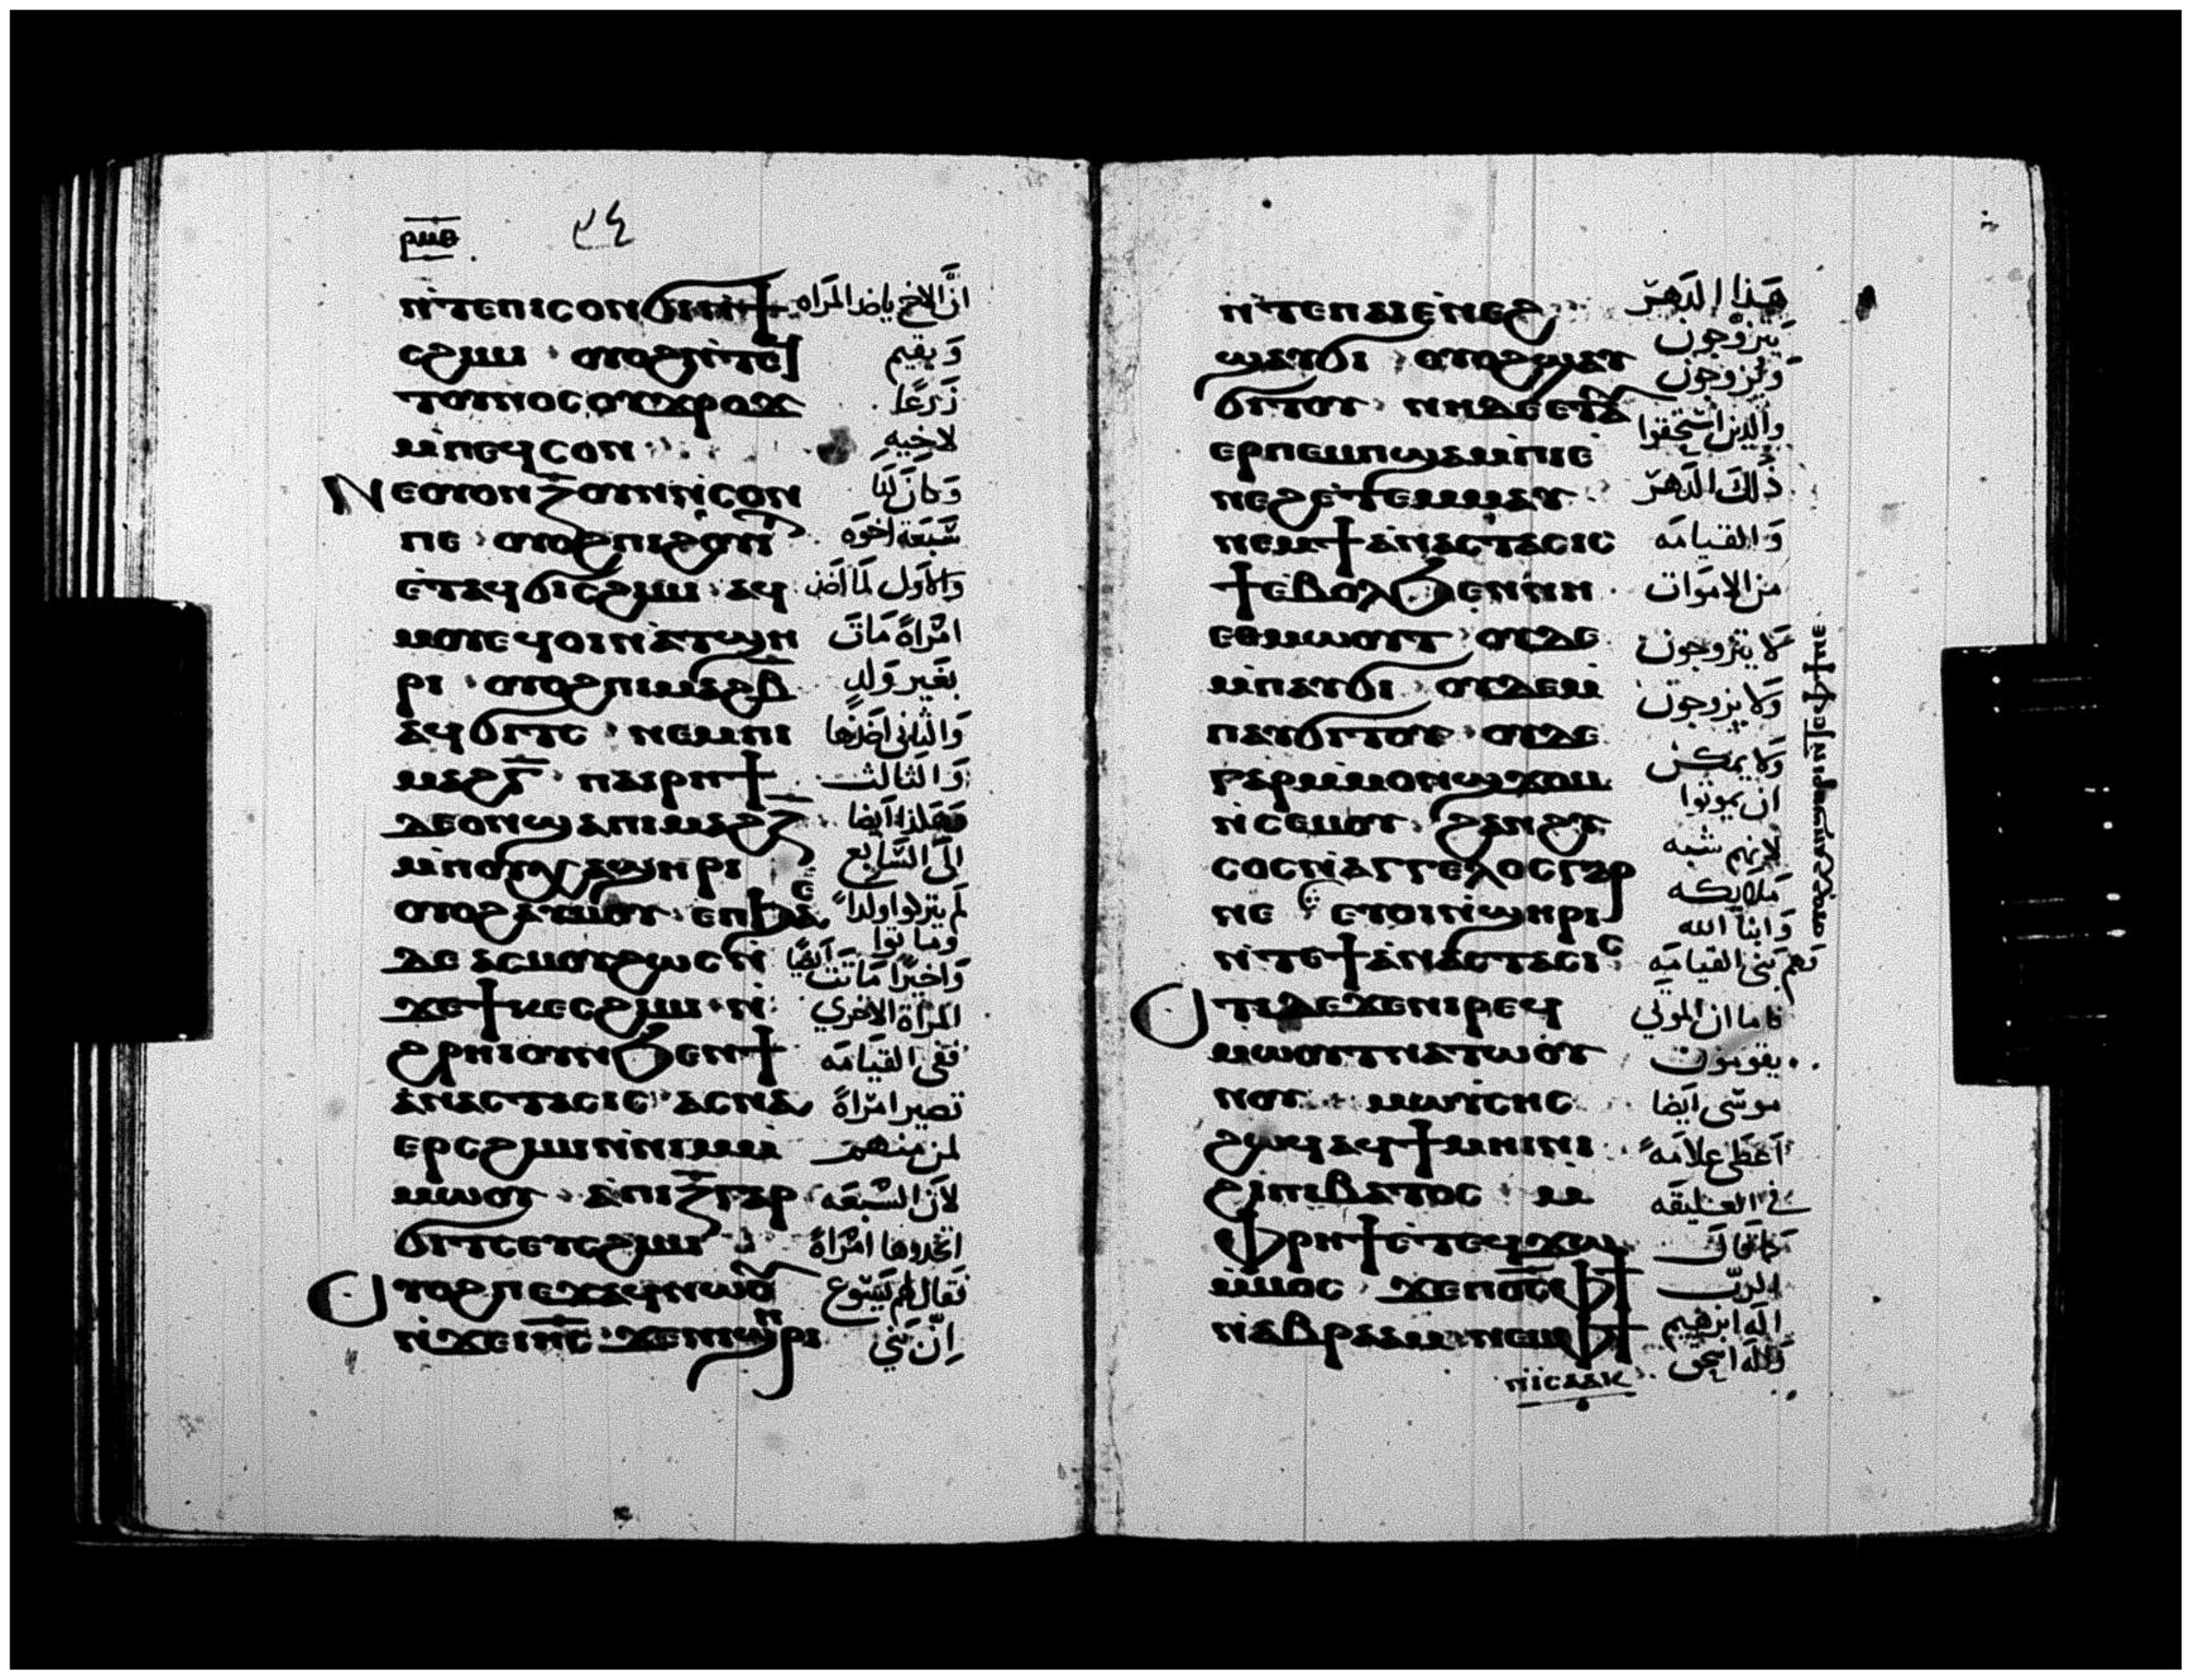 ⲣⲙⲑ
ⲛ̀ⲧⲉⲡⲓⲥⲟⲛϭⲓⲛ̀ϯ انَّ الاخ ياخد المَراه
ⲥϩⲓⲙⲓ ⲟⲩⲟϩⲛ̀ⲧⲉϥ وَ يقيم
ⲧⲟⲩⲛⲟⲥⲟⲩϫⲣⲟϫ زَرعًا
ⲙ̀ⲡⲉϥⲥⲟⲛ لاخيهِ
ⲛⲉⲟⲩⲟⲛⲍ̅ⲟⲩⲛⲛ̀ⲥⲟⲛ وَ كانَ لَنا
ⲡⲉ ⲟⲩⲟϩⲡⲓϩⲟⲩⲓⲧ سَبعَة اخوَه
ⲉ̀ⲧⲁϥϭⲓⲥϩⲓⲙⲓ ⲁϥ والاوَل لَما اخد
ⲙⲟⲩⲉϥⲟⲓⲛ̀ⲁⲧϣⲏ امرَاةً مَاتَ
ⲣⲓ ⲟⲩⲟϩⲡⲓⲙⲁϩⲃ̅ بغَير وَلدٍ
ⲁϥϭⲓⲧⲥ ⲛⲉⲙⲡⲓ وَالثانى اخدَها
ⲙⲁϩⲅ̅ ⲡⲁⲓⲣⲏϯ وَالثالث
ⲇⲉⲟⲛϣⲁⲡⲓⲙⲁϩⲍ̅ وَهَكذا ايضا
ⲙ̀ⲡⲟⲩⲭⲁϣⲏⲣⲓ الىَ السَّابع
ⲟⲩⲟϩⲁⲩⲙⲟⲩ ⲉⲡϧⲁⲉ لَم يتركوا ولداً
وماتوا
ⲇⲉ ⲁⲥⲙⲟⲩϩⲱⲥⲛ̀ وَاخيرًا مَاتَت ايضًا
ϫⲉϯⲕⲉⲥϩⲓⲙⲓ ⲛ̀ المرَاة الاخري
ϩⲣⲏⲓⲟⲩⲛϧⲉⲛϯ ففى القيَامَه
ⲁ̀ⲛⲁⲥⲧⲁⲥⲓⲥ ⲁⲥⲛⲁ تصير امرَاةً
ⲉⲣⲥϩⲓⲙⲓⲛ̀ⲛⲓⲙⲙ̀ لمن منهم
ⲙⲱⲟⲩ ⲁ̀ⲡⲓⲍ̅ⲅⲁⲣ لاَن السَّبعَه
ϭⲓⲧⲥⲉⲩⲥϩⲓⲙⲓ اتخدوها امرَاةً
ⲟⲩⲟϩⲡⲉϫⲁϥⲛⲱⲟⲩ فقال لهم يَسُوع
ⲛ̀ϫⲉⲓⲏ̅ⲥ ϫⲉⲛⲓϣⲏⲣⲓ اِنَّ بَني
ⲛ̀ⲧⲉⲡⲁⲓⲉ̀ⲛⲉϩ هَذا الدَهرّ
ϣⲁⲩϭⲓ ⲟⲩⲟϩϣⲁⲩ يتزوجون
وَيُزوجون
ϭⲓⲧⲟⲩ ⲛⲏⲇⲉⲉⲧⲁⲩ والدين استحقوا
ⲉⲣⲡⲉⲙⲡϣⲁⲙ̀ⲡⲓⲉ̀
ⲛⲉϩⲉ̀ⲧⲉⲙⲙⲁⲩ ذَلكَ الدَهرّ
ⲛⲉⲙϯⲁ̀ⲛⲁⲥⲧⲁⲥⲓⲥ وَالقيامَه
ϯⲉⲃⲟⲗϧⲉⲛⲛⲏ من الاموَات
ⲉⲑⲙⲱⲟⲩⲧ ⲟⲩⲇⲉ لا يتزوجون
ⲙ̀ⲡⲁⲩϭⲓ ⲟⲩⲇⲉⲙ̀ وَلا يزوجون
ⲡⲁⲩϭⲓⲧⲟⲩ ⲟⲩⲇⲉ
ⲅⲁⲣⲙ̀ⲙⲟⲛϣϫⲟⲙ وَلا يمكن
ⲛ̀ⲥⲉⲙⲟⲩ ϩⲁⲛϩⲩ ان يموتوا
ⲥⲟⲥⲛ̀ⲁⲅⲅⲉⲗⲟⲥⲅⲁⲣ لانهم شبه
ⲛⲉ ⲉⲩⲟⲓⲛ̀ϣⲏⲣⲓ مَلايكه
وَ ابنا الله
ⲛ̀ⲧⲉϯⲁ̀ⲛⲁⲥⲧⲁⲥⲓⲥ بنى القيامَهِ
ⲟⲧⲓⲇⲉϫⲉⲛⲓⲣⲉϥ فاما ان الموتي
ⲙⲱⲟⲩⲧⲛⲁⲧⲱⲟⲩ يقومون
ⲛⲟⲩ ⲙⲱⲩⲥⲏⲥ موسَى ايَضا
ϩⲱϥⲁϥϯⲙⲏⲓⲛⲓ اَعَطى علاَمَهً
ϩⲓⲡⲓⲃⲁⲧⲟⲥ ⲙ̀ في العليقَه
ⲫⲣⲏϯⲉ̀ⲧⲉϥϫⲱ كما قال
ⲙ̀ⲙⲟⲥ ϫⲉⲡⲟ̅ⲥⲫϯ الربّ
ⲛ̀ⲁⲃⲣⲁⲁⲙ ⲛⲉⲙⲫϯ اله ابرَهيم
ⲛ̀ⲓⲥⲁⲁⲕ وَاله اسحق